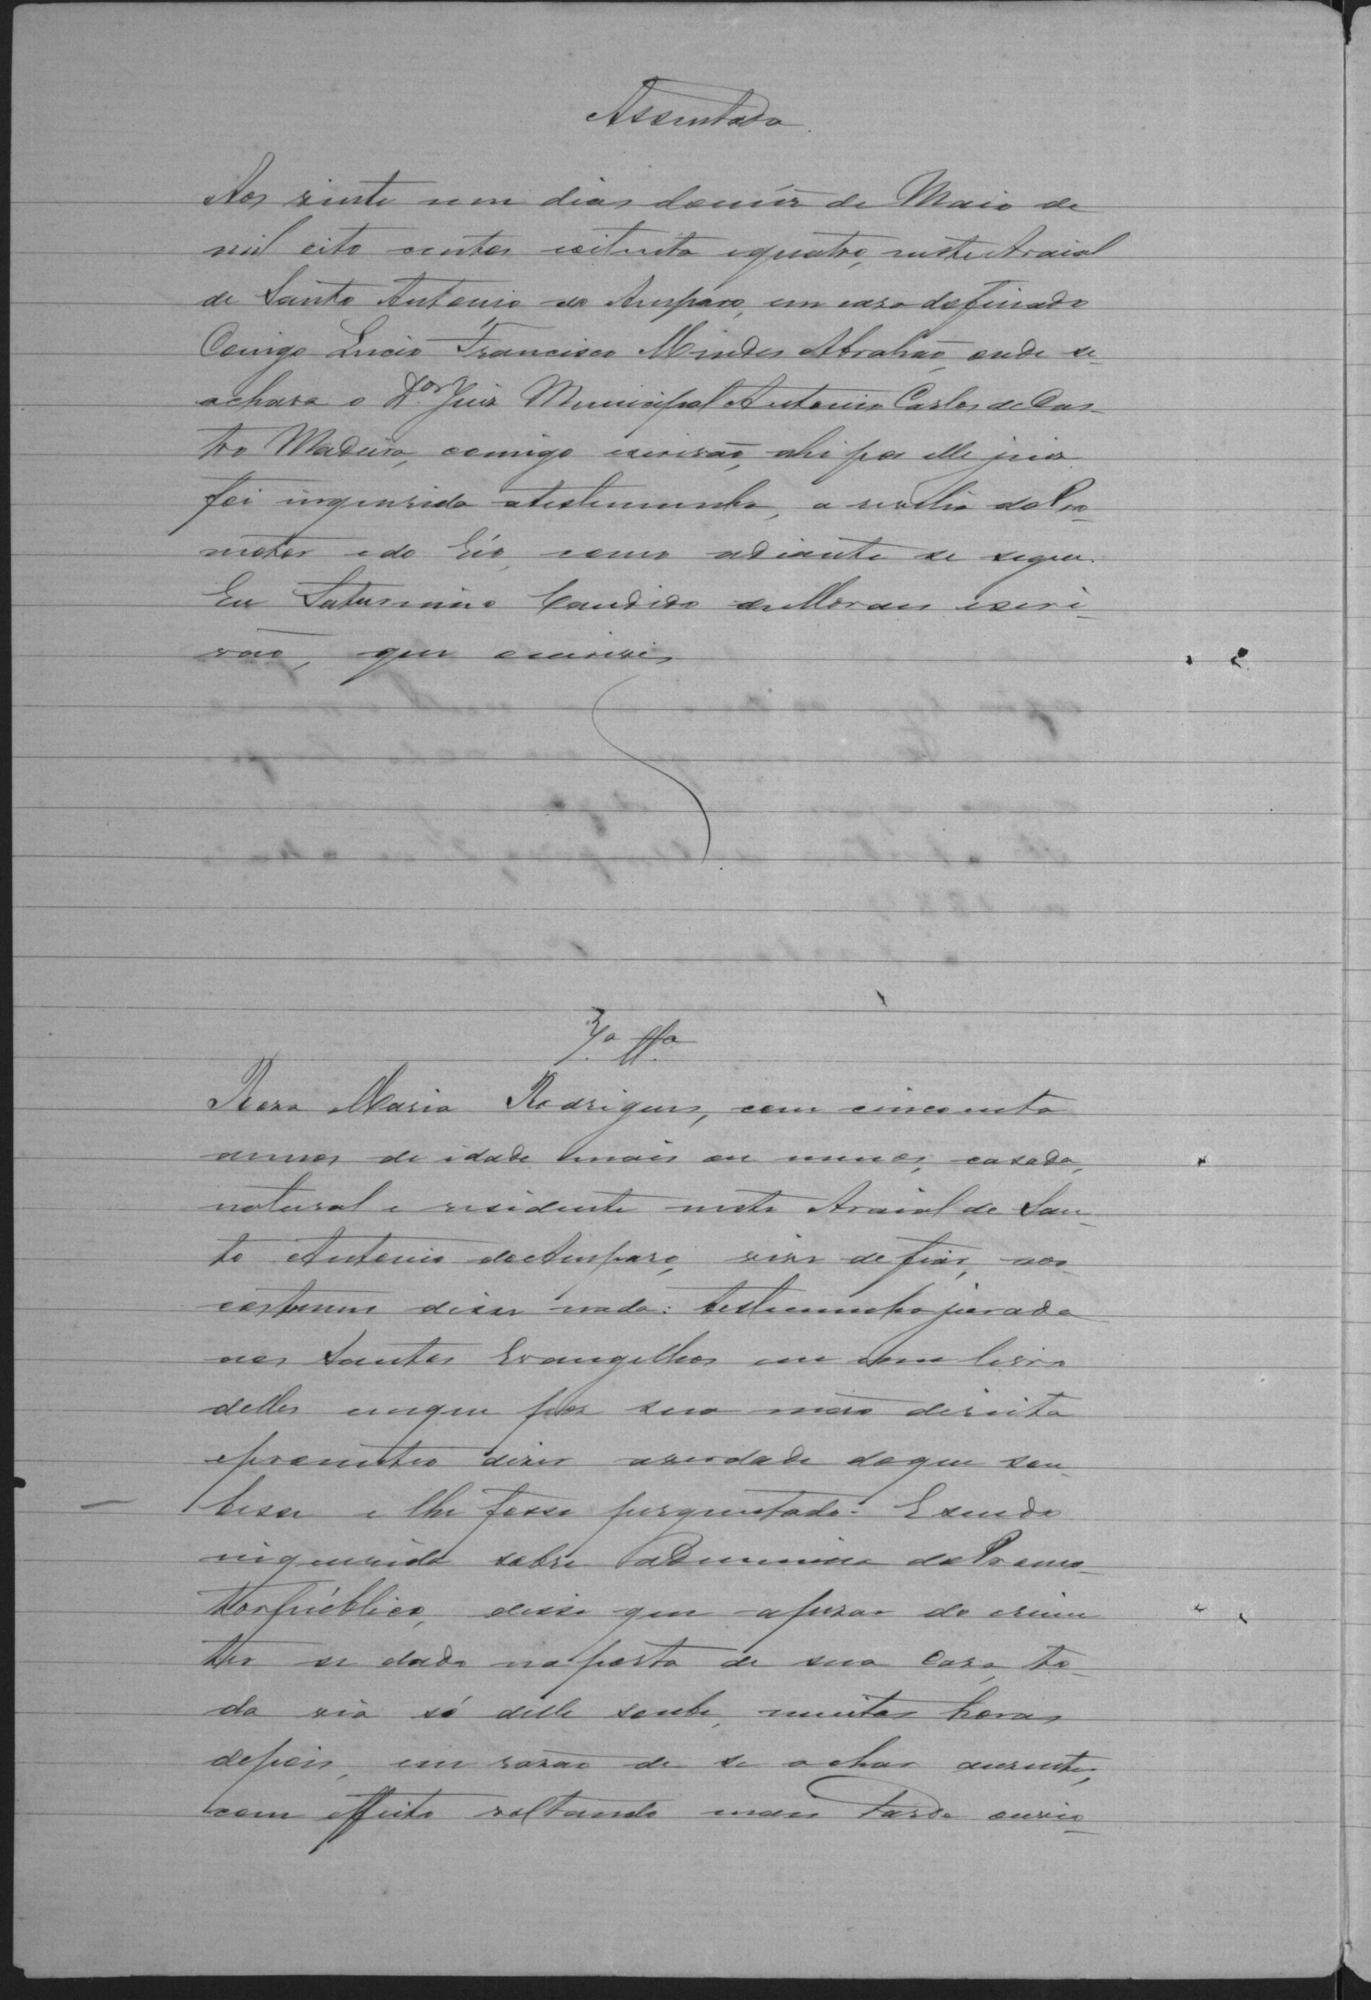 Assentada
Aos vinte um dias domêz de Maio de
mil oito centos eoitenta equatro, nesteArraial
de Santo Antonio do Amparo, em casa dofinado
Conigo Lucio Francisco Mendes Abrahaõ, onde se
achava o Dor. Juiz Municipal Antonio Carlos de Cas-
tro Madeira, comigo escrivaõ, ahi por elle juiz
foi inquirida atestemunha, a revelia doPro-
motor e do Réo, como adiante se segue.
Eu Saturnino Candido deMoraes escri-
vaõ, que escrivi
7a. Tta.
Roza Maria Rodrigues, com cincoenta
annos de idade mais ou menos, casada,
natural e residente neste Arraial de San-
to Antonio doAmparo, vive de fiar, aos
costumes disse nada: testemunha jurada
aos Santos Evangelhos em um livro
delles emque poz sua maõ direita
eprometeo dizer averdade doque sou-
besse e lhe fosse perguntado. Esendo
inquerida sobre adenuncia doPromo-
torpúblico, disse que apezar do crime
ter se dado naporta de sua casa, to-
da via só delle soube, muitas horas
depois, em razaõ de se achar auzente,
com effeito voltando mais tarde ouvio